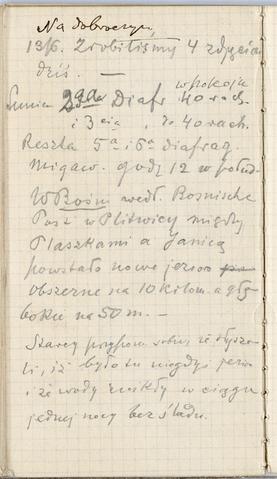 Na dobroczyn,
13/6. Zrobiliśmy 4 zdjęcia
dziś. —
w pokoju
2ga Diafr 40 rach.
i 3cia, do 40 rach.
Reszta 5a i 6a diafrag.
Migaw. godz 12 w połud
W Bośni wedł. Bosnische
Post w Plitwicy między
Plaszkami a Janicą
powstało nowe jezioro
obszerne na 10 kilom. a głę-
bokie na 50 m. —
Starcy przypom. sobie, że słysze-
li, iż było tu niegdyś jezio
i że wody znikły w ciągu
jednej nocy bez śladu.